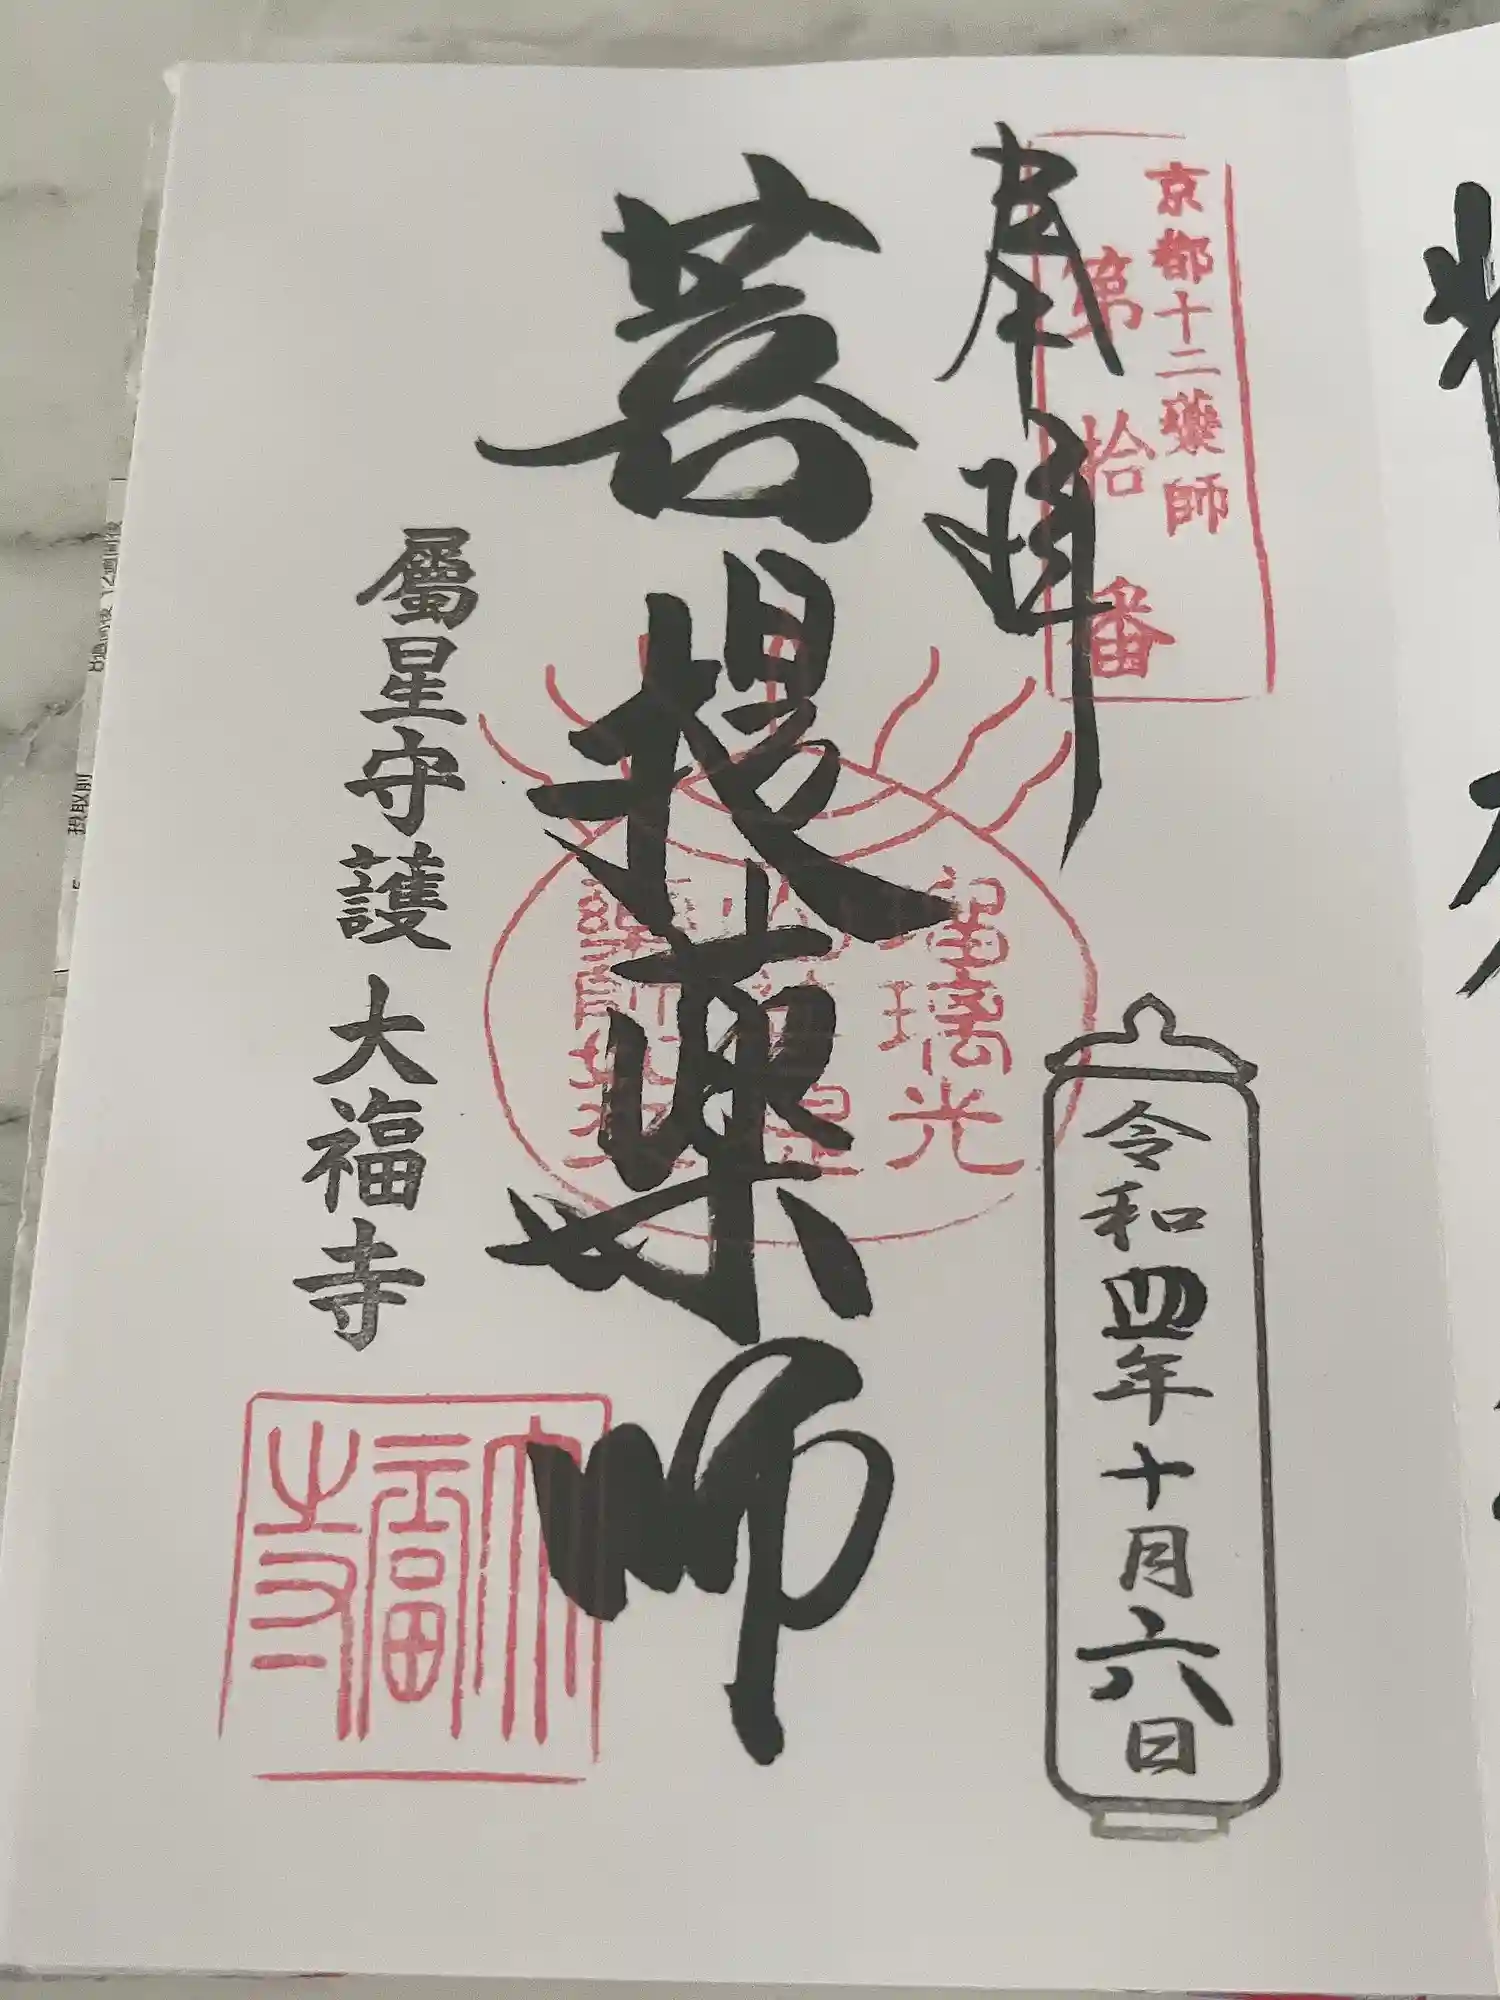 京都十二藥師
第拾番
奉拝
令和四年十月六日
菩提薬師
瑠璃光
屬星守護 大福寺
大福寺